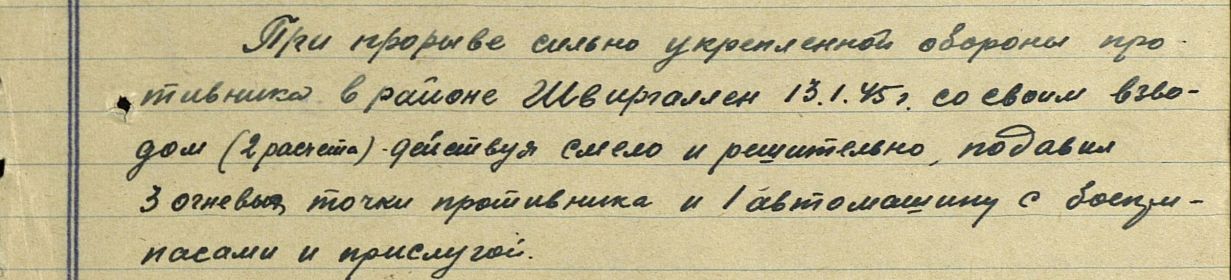 При прорыве сильно укрепленной обороны про-
тивника в районе Швиргаллен 13.1.45 г. со своим взво-
дом (2 расчета) действуя смело и решительно, подавил
3 огневых точки противника и 1 автомашину с боепри-
пасами и прислугой.